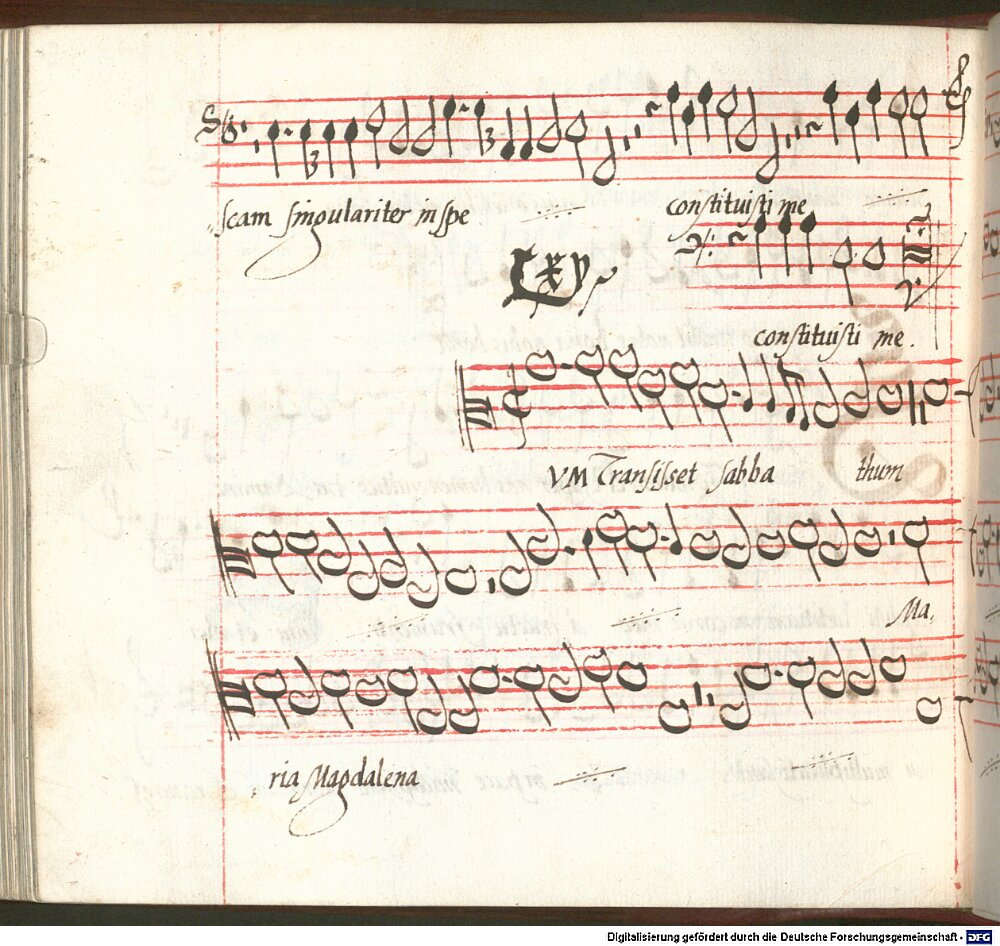 scam singulariter in spe constituisti me
Lxv
constituisti me.
VM Transisset sabba thum
Ma,
ria Magdalena
Digitalisierung gefördert durch die Deutsche Forschungsgemeinschaft - DFG